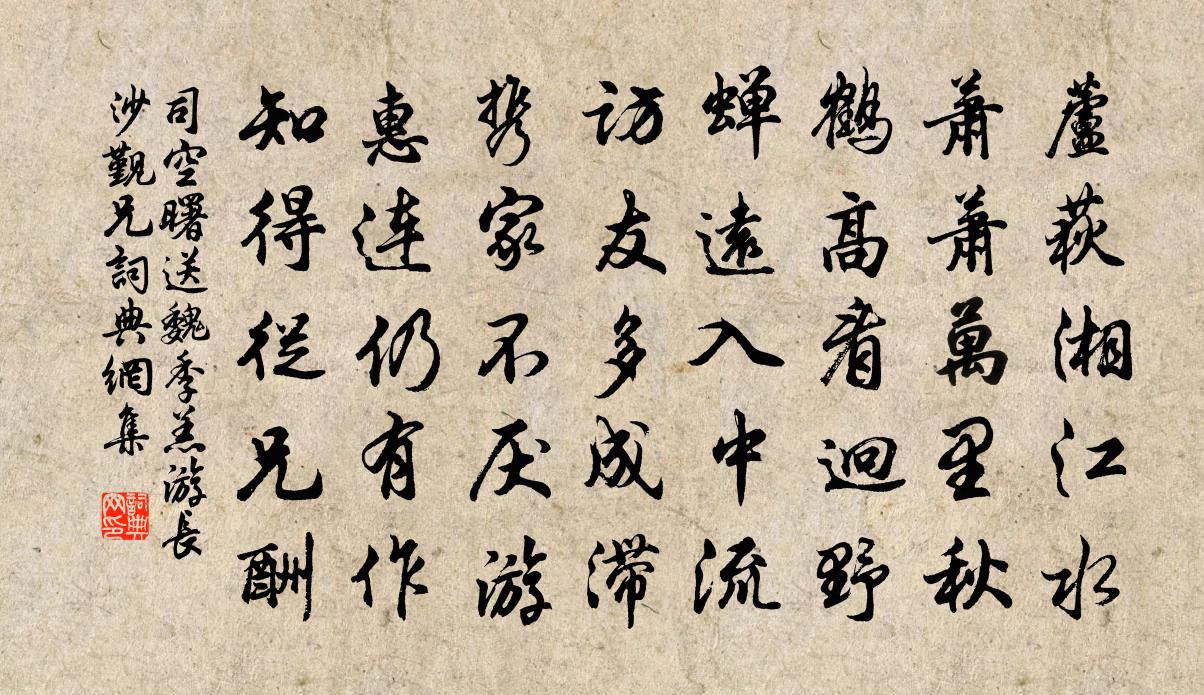 蘆荻湘江水
蕭蕭萬里秋
鶴高看迥野
蟬遠入中流
訪友多成滯
携家不厌游
惠連仍有作
知得從兄酬
司空曙送魏季羔游長
沙覲兄詞典網集
詞典网印